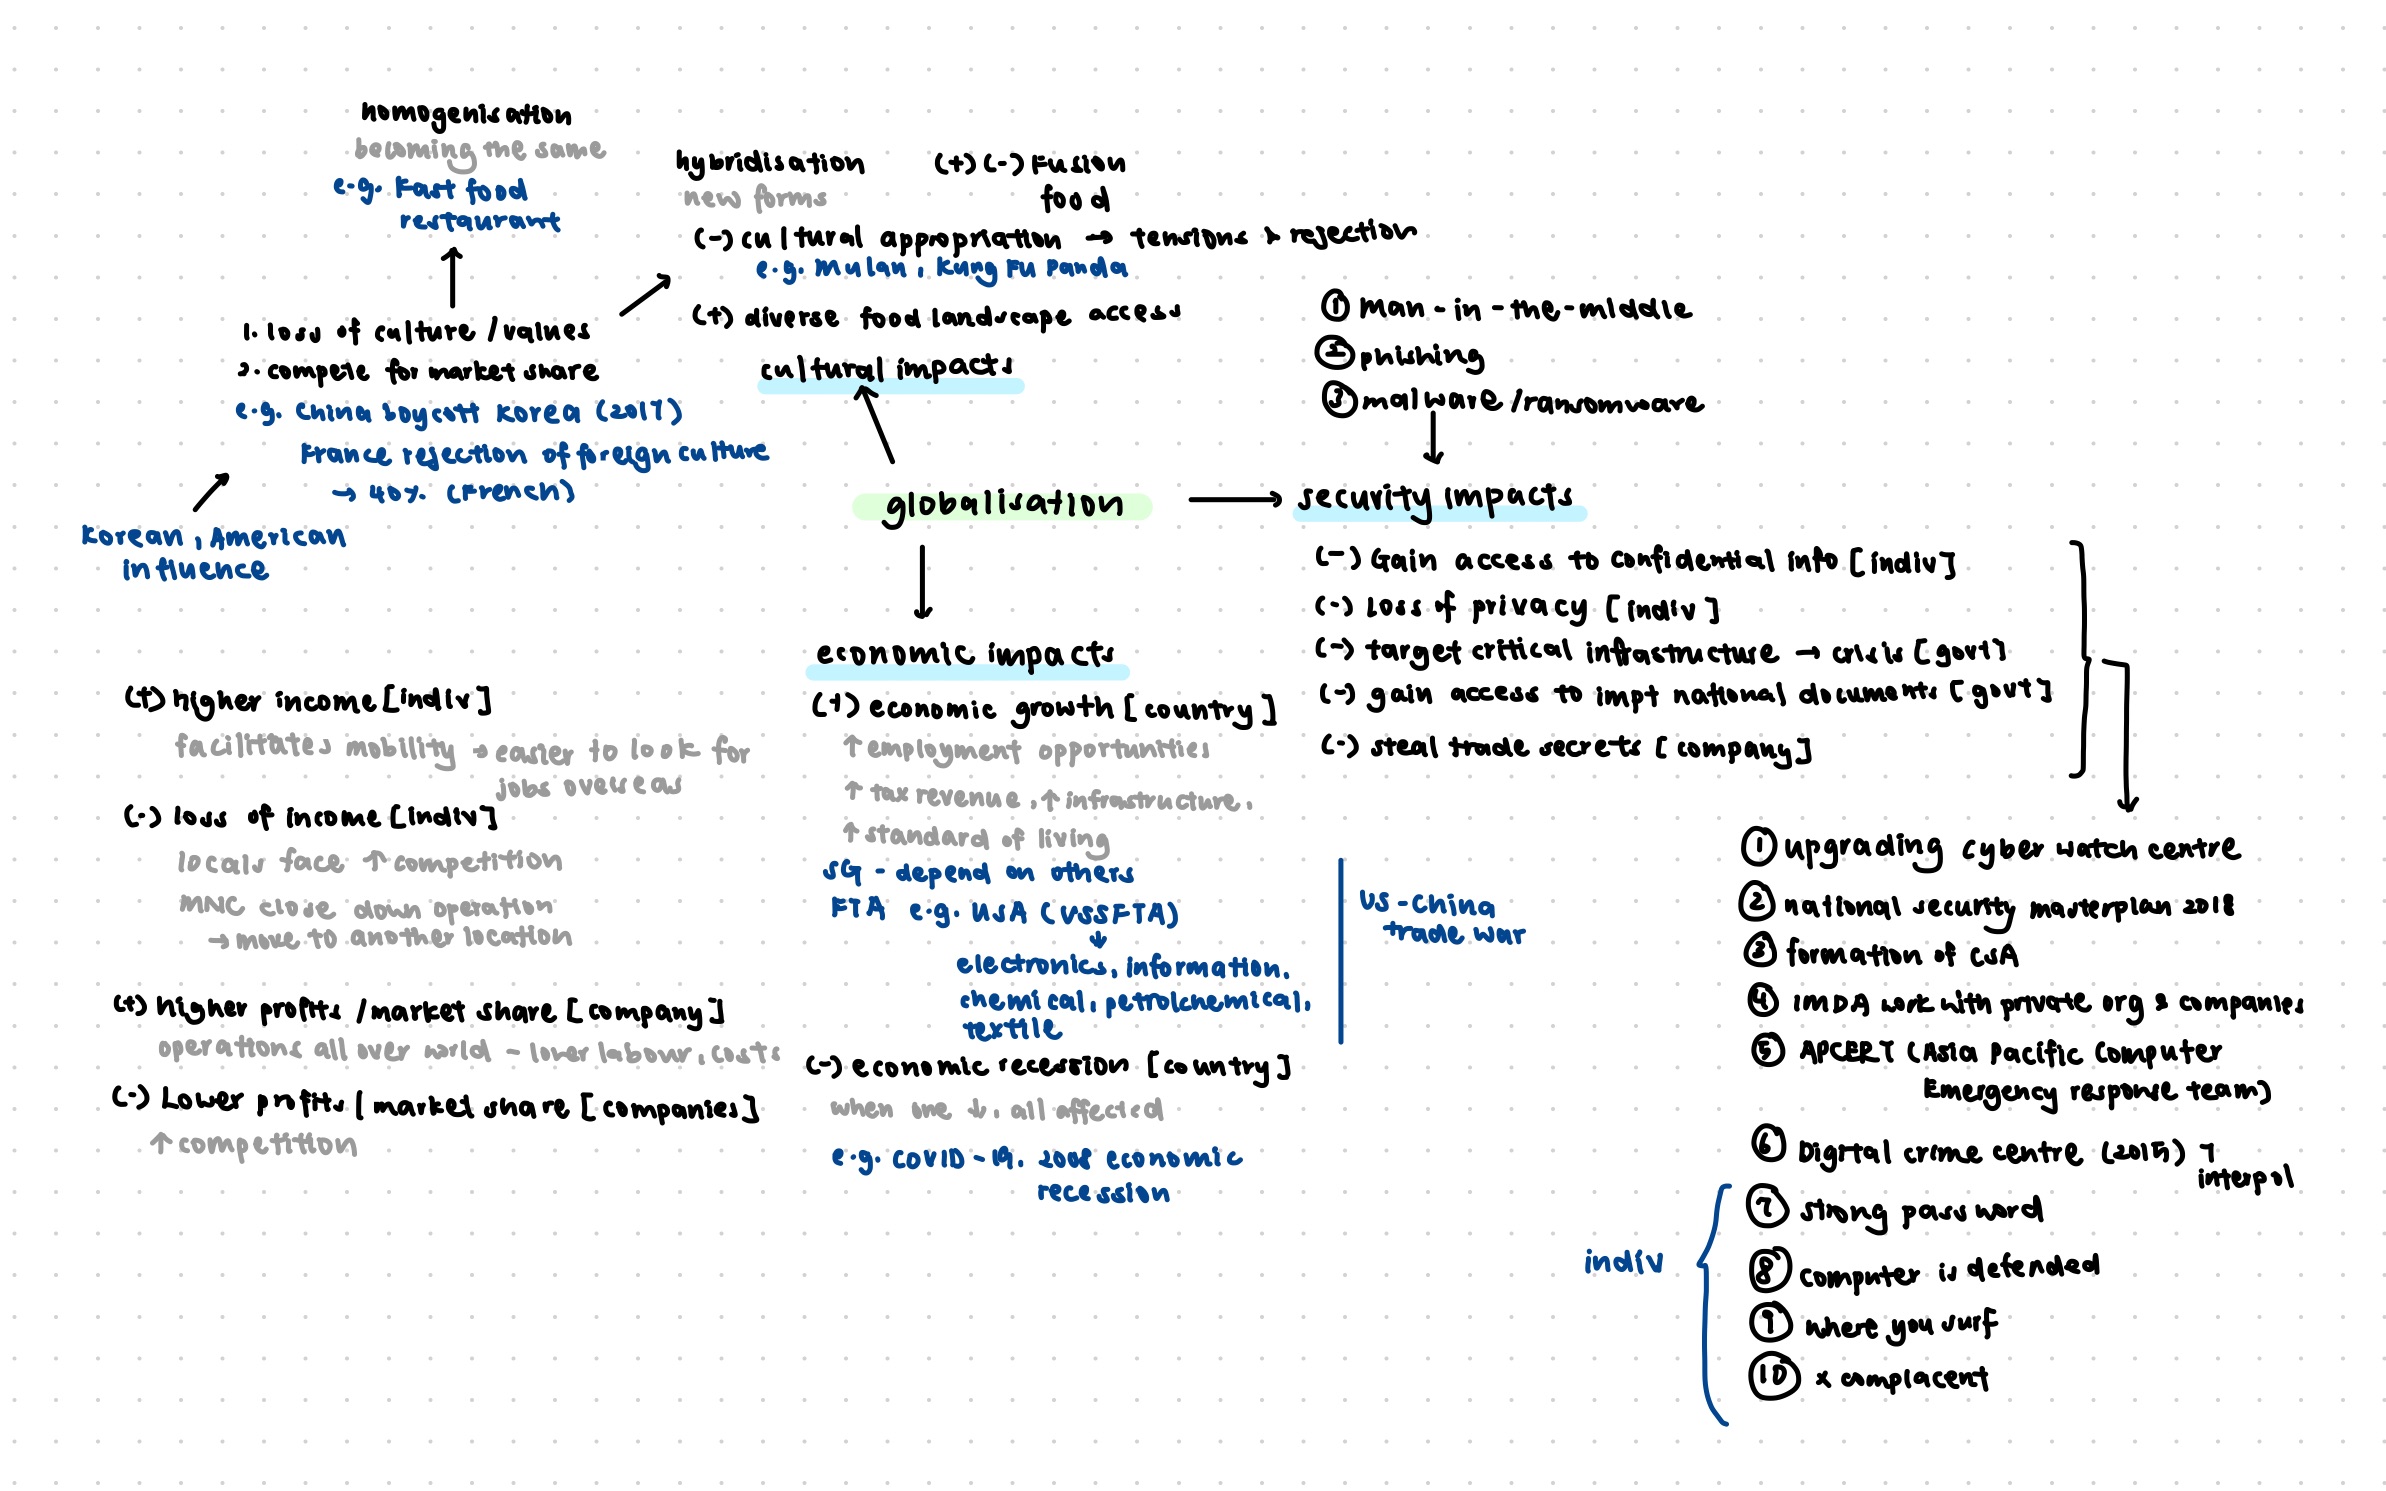 homogenisation
becoming the same
e.g. Fast food
restaurant
1. loss of culture / values
2. compete for market share
e.g. China boycott Korea (2017)
France rejection of foreign culture
→ 40% (French)
Korean, American
influence
hybridisation
new forms
(+) (-) Fusion
food
(-) cultural appropriation → tensions & rejection
e.g. Mulan, Kung Fu Panda
(+) diverse food landscape access
cultural impacts
globalisation
① Man-in-the-middle
② phishing
③ malware / ransomware
security impacts
(-) Gain access to confidential info [indiv]
(-) loss of privacy [indiv]
(-) target critical infrastructure → crisis [govt]
(-) gain access to impt national documents [govt]
(-) steal trade secrets [company]
① upgrading cyber watch centre
② national security masterplan 2018
③ formation of CSA
④ IMDA work with private org & companies
⑤ APCERT (Asia Pacific Computer
Emergency response team)
⑥ Digital crime centre (2015) 7
interpol
indiv
⑦ strong password
⑧ computer is defended
⑨ where you surf
⑩ x complacent
economic impacts
(+) economic growth [country]
↑ employment opportunities
↑ tax revenue, ↑ infrastructure,
↑ standard of living
SG - depend on others
FTA e.g. USA (USSFTA)
↓
electronics, information,
chemical, petrolchemical,
textile
US-China
trade war
(-) economic recession [country]
when one ↓, all affected
e.g. COVID-19, 2008 economic
recession
(+) higher income [indiv]
facilitates mobility → easier to look for
jobs overseas
(-) loss of income [indiv]
locals face ↑ competition
MNC close down operation
→ move to another location
(+) higher profits / market share [company]
operations all over world - lower labour, costs
(-) Lower profits | market share [companies]
↑ competition